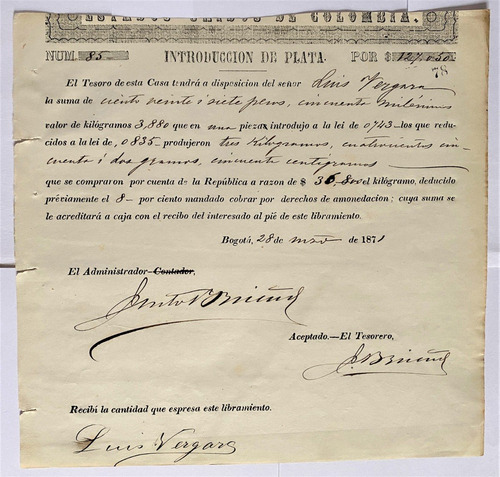 ESTADOS UNIDOS DE COLOMBIA.
NUM. 85. INTRODUCCION DE PLATA. POR $ 127.050
78
El Tesoro de esta Casa tendrá a disposicion del señor Luis Vergara
la suma de ciento veinte i siete pesos, cincuenta milésimos
valor de kilógramos 3,880 que en una pieza introdujo a la lei de 0743 los que redu-
cidos a la lei de 0835 produjeron tres kilogramos, cuatrocientos cin-
cuenta i dos gramos, cincuenta centigramos
que se compraron por cuenta de la República a razon de $ 36,800 el kilógramo, deducido
préviamente el 8 por ciento mandado cobrar por derechos de amonedacion; cuya suma se
le acreditará a caja con el recibo del interesado al pié de este libramiento.
Bogotá, 28 de mzo de 1871
El Administrador Contador,
Briceño
Aceptado.—El Tesorero,
J. Briceño
Recibí la cantidad que espresa este libramiento.
Luis Vergara